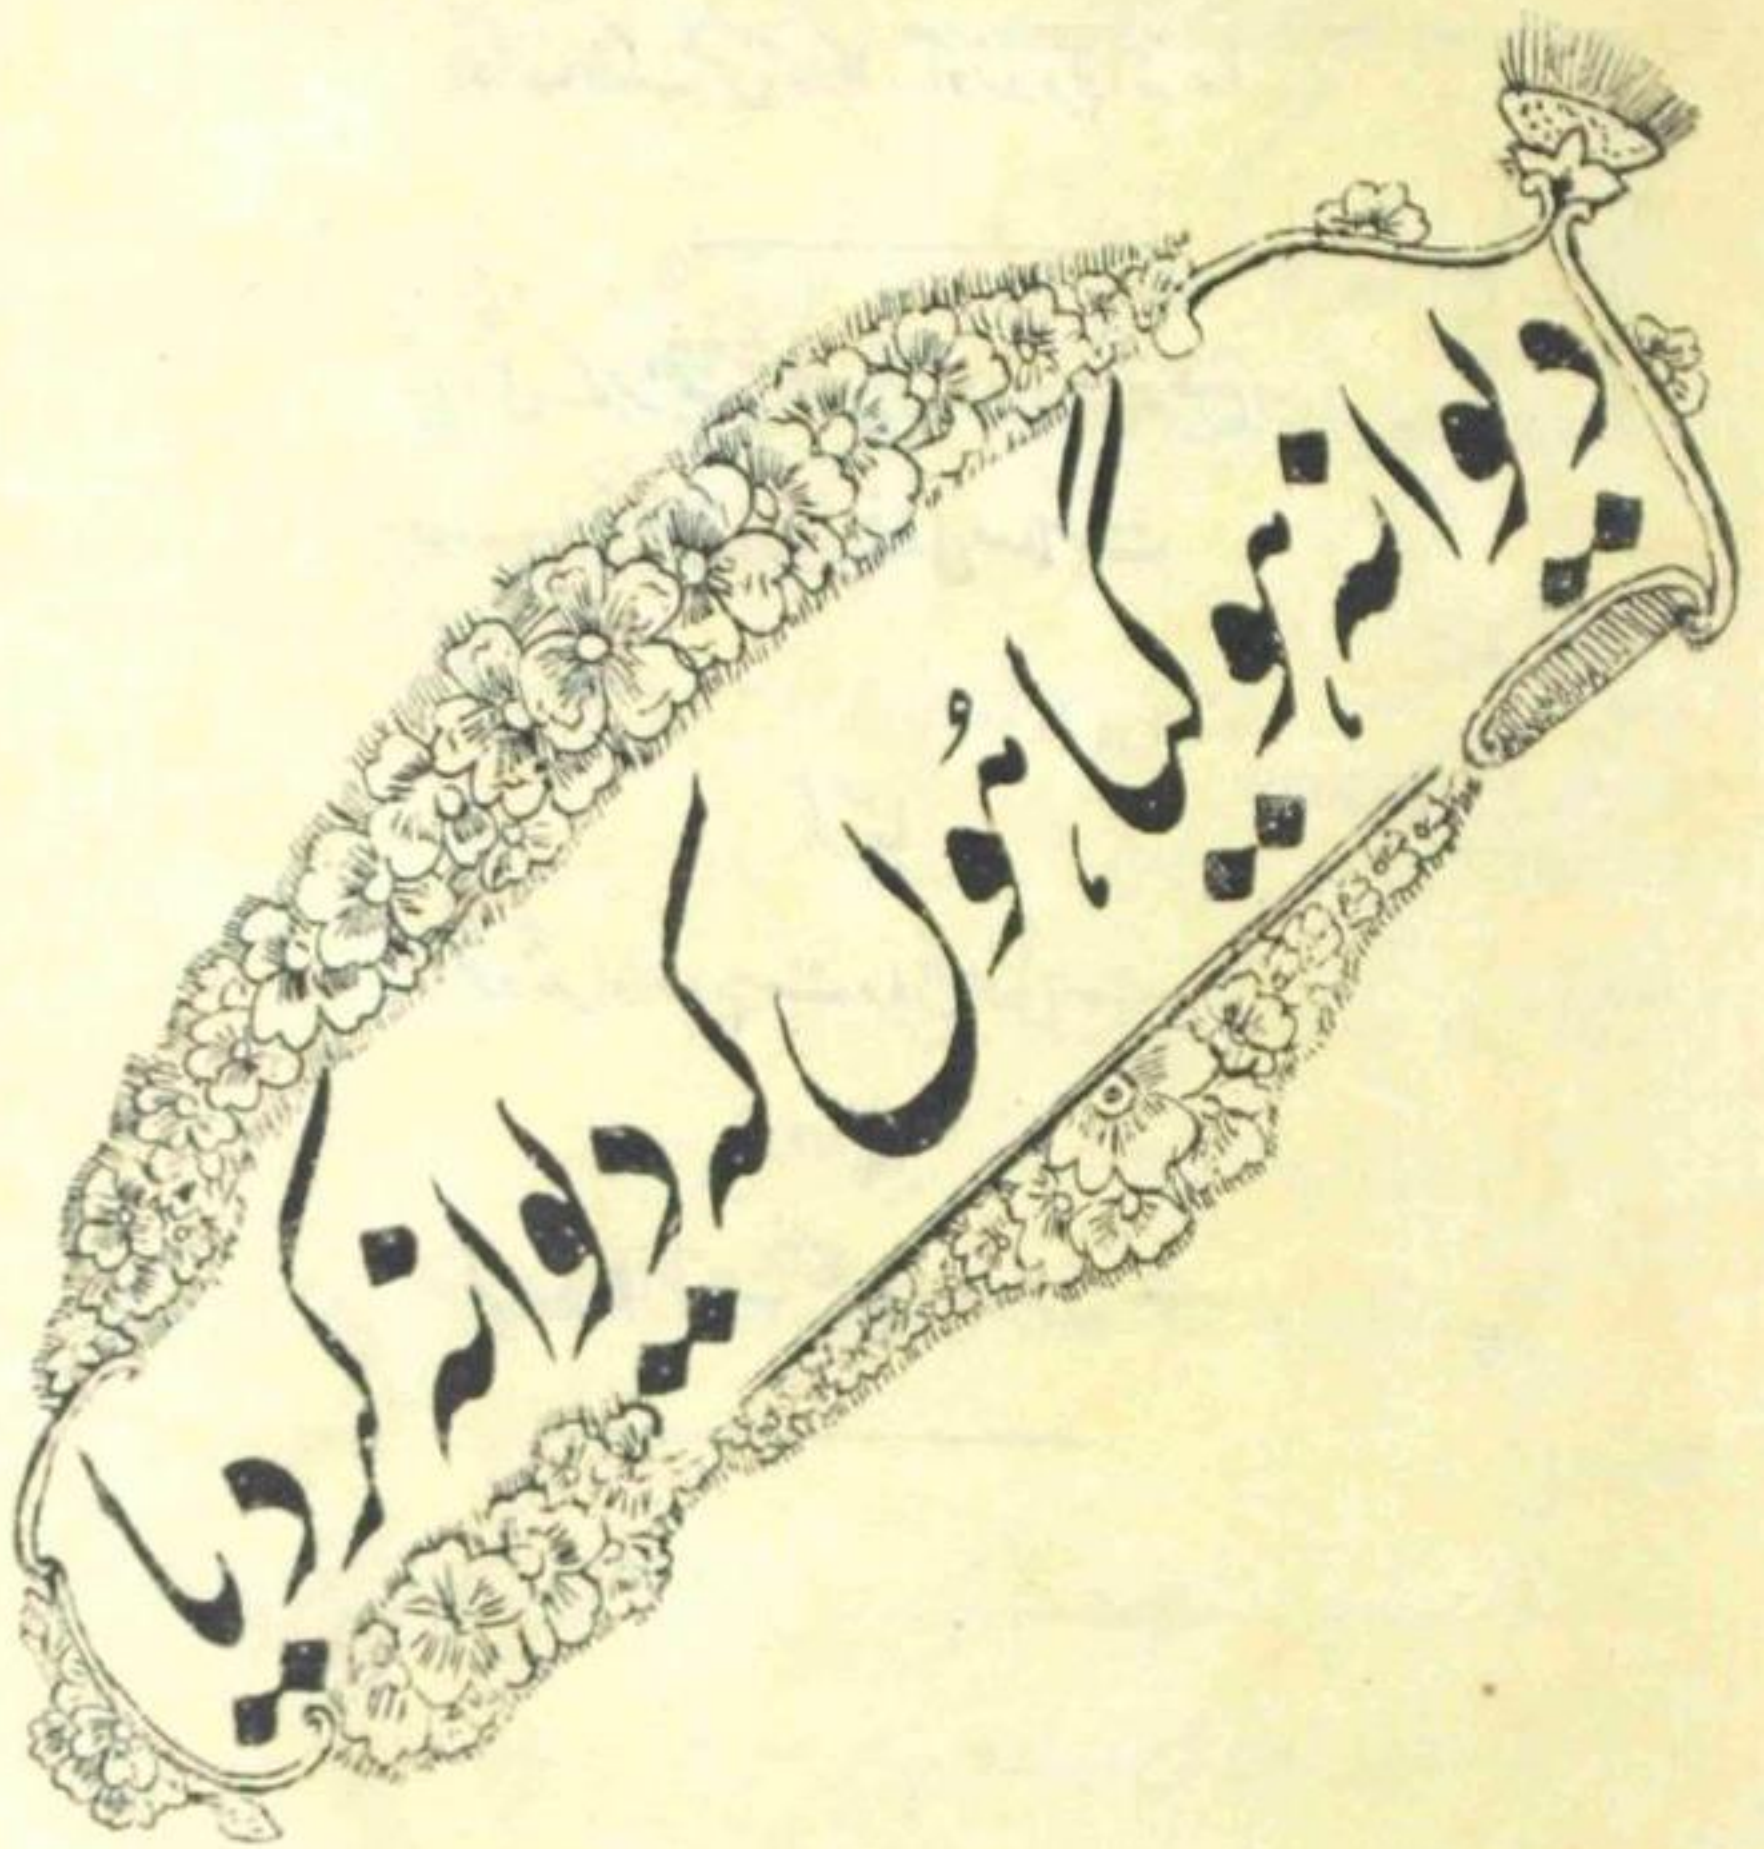 دیوانہ ہو گیا ہُوں کہ دیوانہ کر دیا